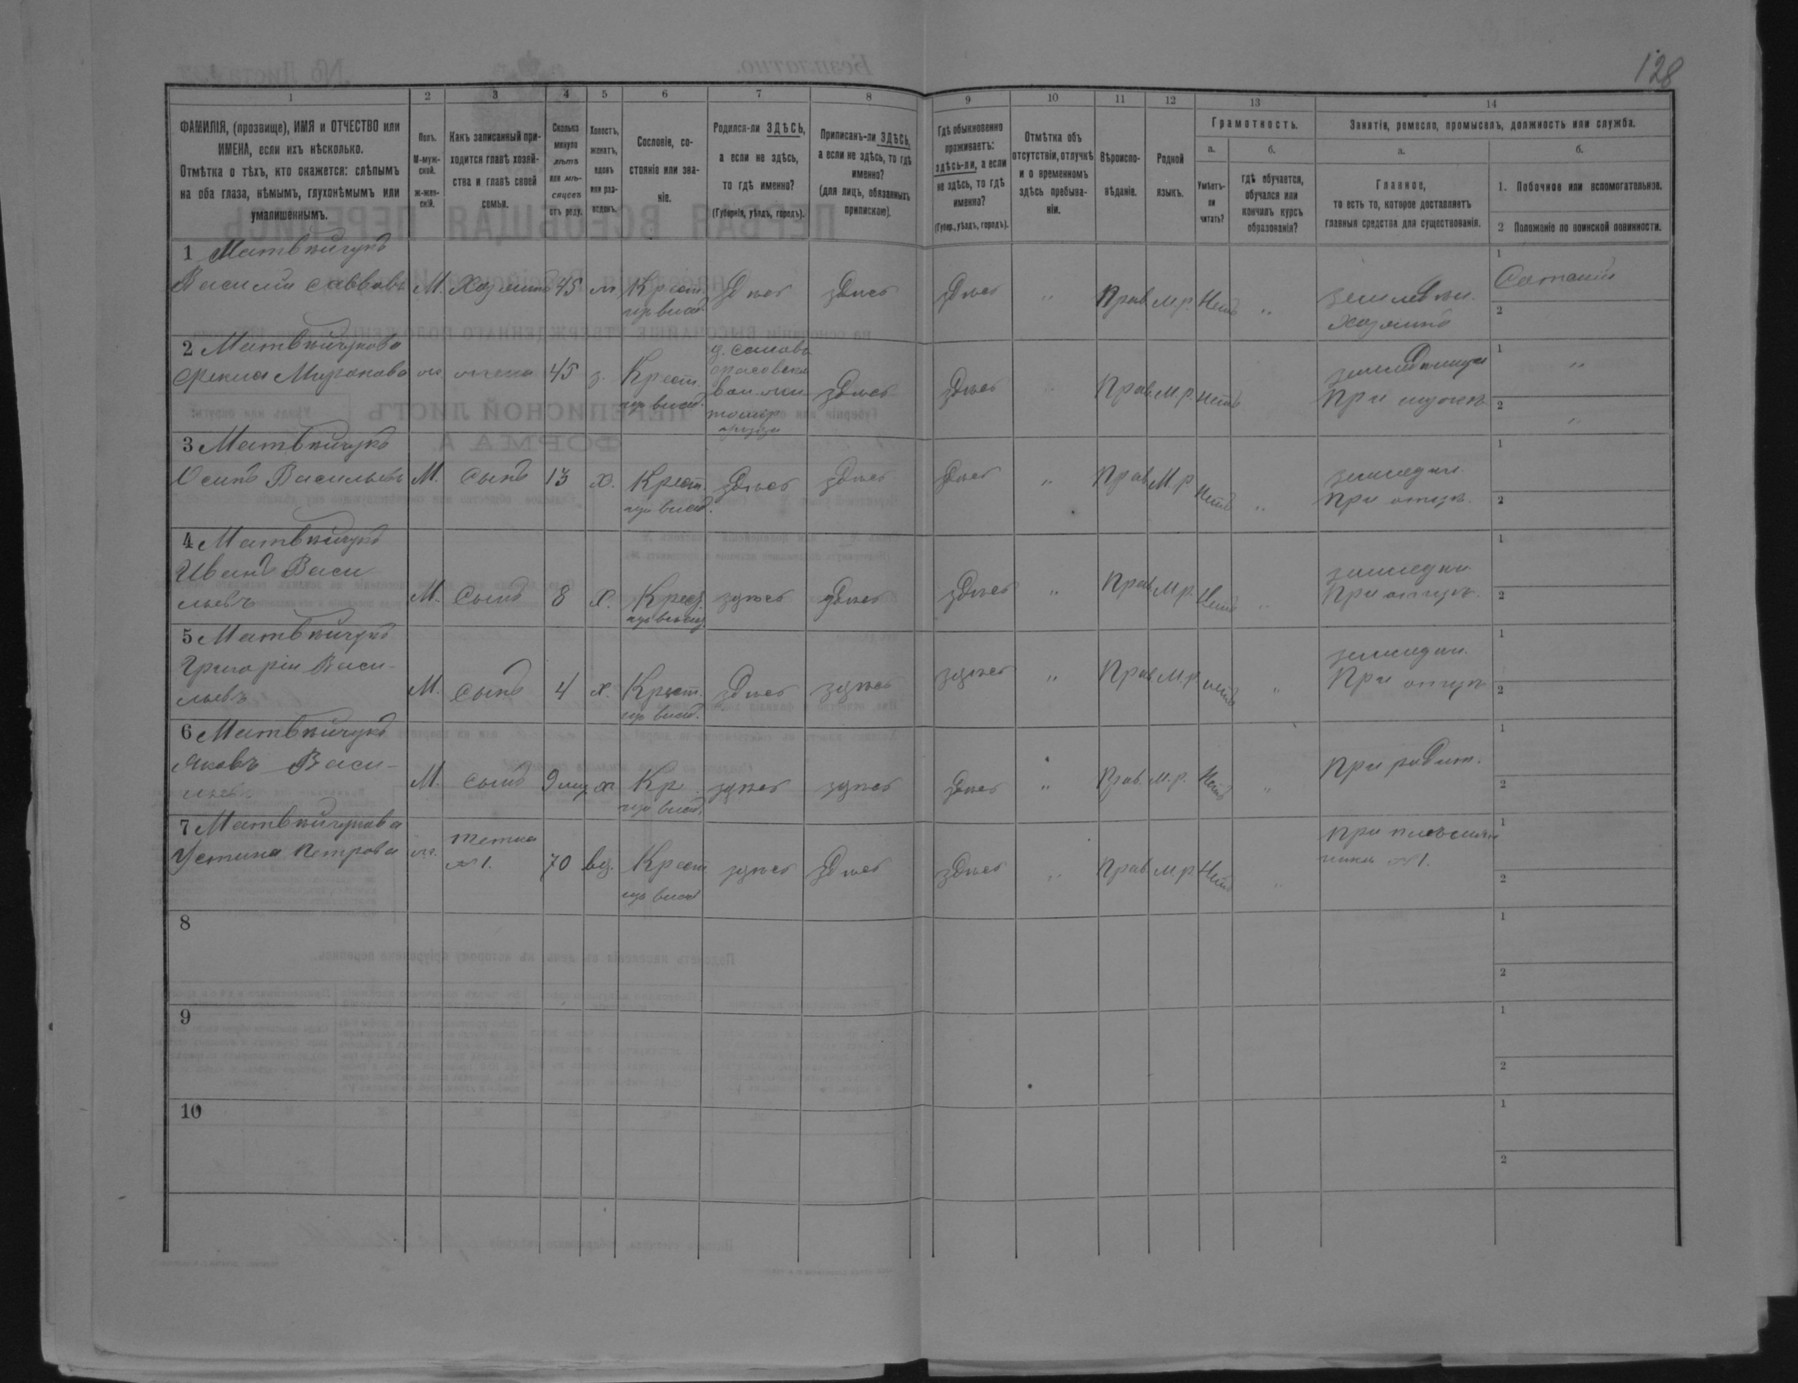 128
1 2 3 4 5 6 7 8 9 10 11 12 13 14
ФАМИЛІЯ, (прозвище), ИМЯ и ОТЧЕСТВО или
ИМЕНА, если ихъ нѣсколько.
Отмѣтка о тѣхъ, кто окажется: слѣпымъ
на оба глаза, нѣмымъ, глухонѣмымъ или
умалишеннымъ.
Полъ.
М-муж-
ской.
Ж-жен-
скій.
Какъ записанный при-
ходится главѣ хозяй-
ства и главѣ своей
семьи.
Сколько
минуло
лѣтъ
или мѣ-
сяцевъ
отъ роду.
Холостъ,
женатъ,
вдовъ
или раз-
веденъ.
Сословіе, со-
стояніе или зва-
ніе.
Родился-ли ЗДѢСЬ,
а если не здѣсь,
то гдѣ именно?
(Губернія, уѣздъ, городъ).
Приписанъ-ли ЗДѢСЬ,
а если не здѣсь, то гдѣ
именно?
(для лицъ, обязанныхъ
припискою).
Гдѣ обыкновенно
проживаетъ:
здѣсь-ли, а если
не здѣсь, то гдѣ
именно?
(Губер., уѣздъ, городъ).
Отмѣтка объ
отсутствіи, отлучкѣ
и о временномъ
здѣсь пребыва-
ніи.
Вѣроиспо-
вѣданіе.
Родной
языкъ.
Грамотность.
а.
Умѣетъ-
ли
читать?
б.
гдѣ обучается,
обучался или
кончилъ курсъ
образованія?
Занятіе, ремесло, промыселъ, должность или служба.
а.
Главное,
то есть то, которое доставляетъ
главныя средства для существованія.
б.
1. Побочное или вспомогательное.
2 Положеніе по воинской повинности.
1 Матвѣйчукъ
Василій Саввовъ М. Хозяинъ 45 Крест. здѣсь здѣсь здѣсь " Прав. м.р. Нетъ "
хозяинъ
1
2
2 Матвѣйчукова
Мироновa жена 45 з. Крест. здѣсь здѣсь Прав. м.р. нетъ
При мужѣ
1 "
2 "
3 Матвѣйчукъ
Осипъ Васильевъ М. сынъ 13 х. Крест. здѣсь здѣсь здѣсь " Прав. м.р. нетъ "
При отцѣ
1
2
4 Матвѣйчукъ
Иванъ Васи-
льевъ М. сынъ 8 х. Крест. здѣсь здѣсь здѣсь " Прав. м.р. Нетъ "
При отцѣ
1
2
5 Матвѣйчукъ
Григорій Васи-
льевъ М. сынъ 4 х. Крест. здѣсь здѣсь здѣсь " Прав. м.р. нетъ "
При отцѣ
1
2
6 Матвѣйчукъ
Яковъ Васи-
льев. М. сынъ 9 мц х Кр. здѣсь здѣсь здѣсь " Прав. м.р. Нетъ "
При родит.
1
2
7 Матвѣйчукова
Устина Петрова тетка
№ 1. 70 вд. Крест здѣсь здѣсь здѣсь " Прав. м.р. Нетъ "
При племян-
ника №1.
1
2
8
1
2
9
1
2
10
1
2